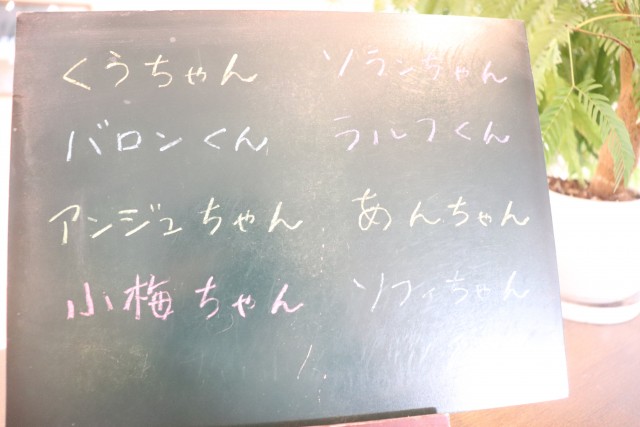 くうちゃん ソランちゃん
バロンくん ラルフくん
アンジュちゃん あんちゃん
小梅ちゃん ソフィちゃん